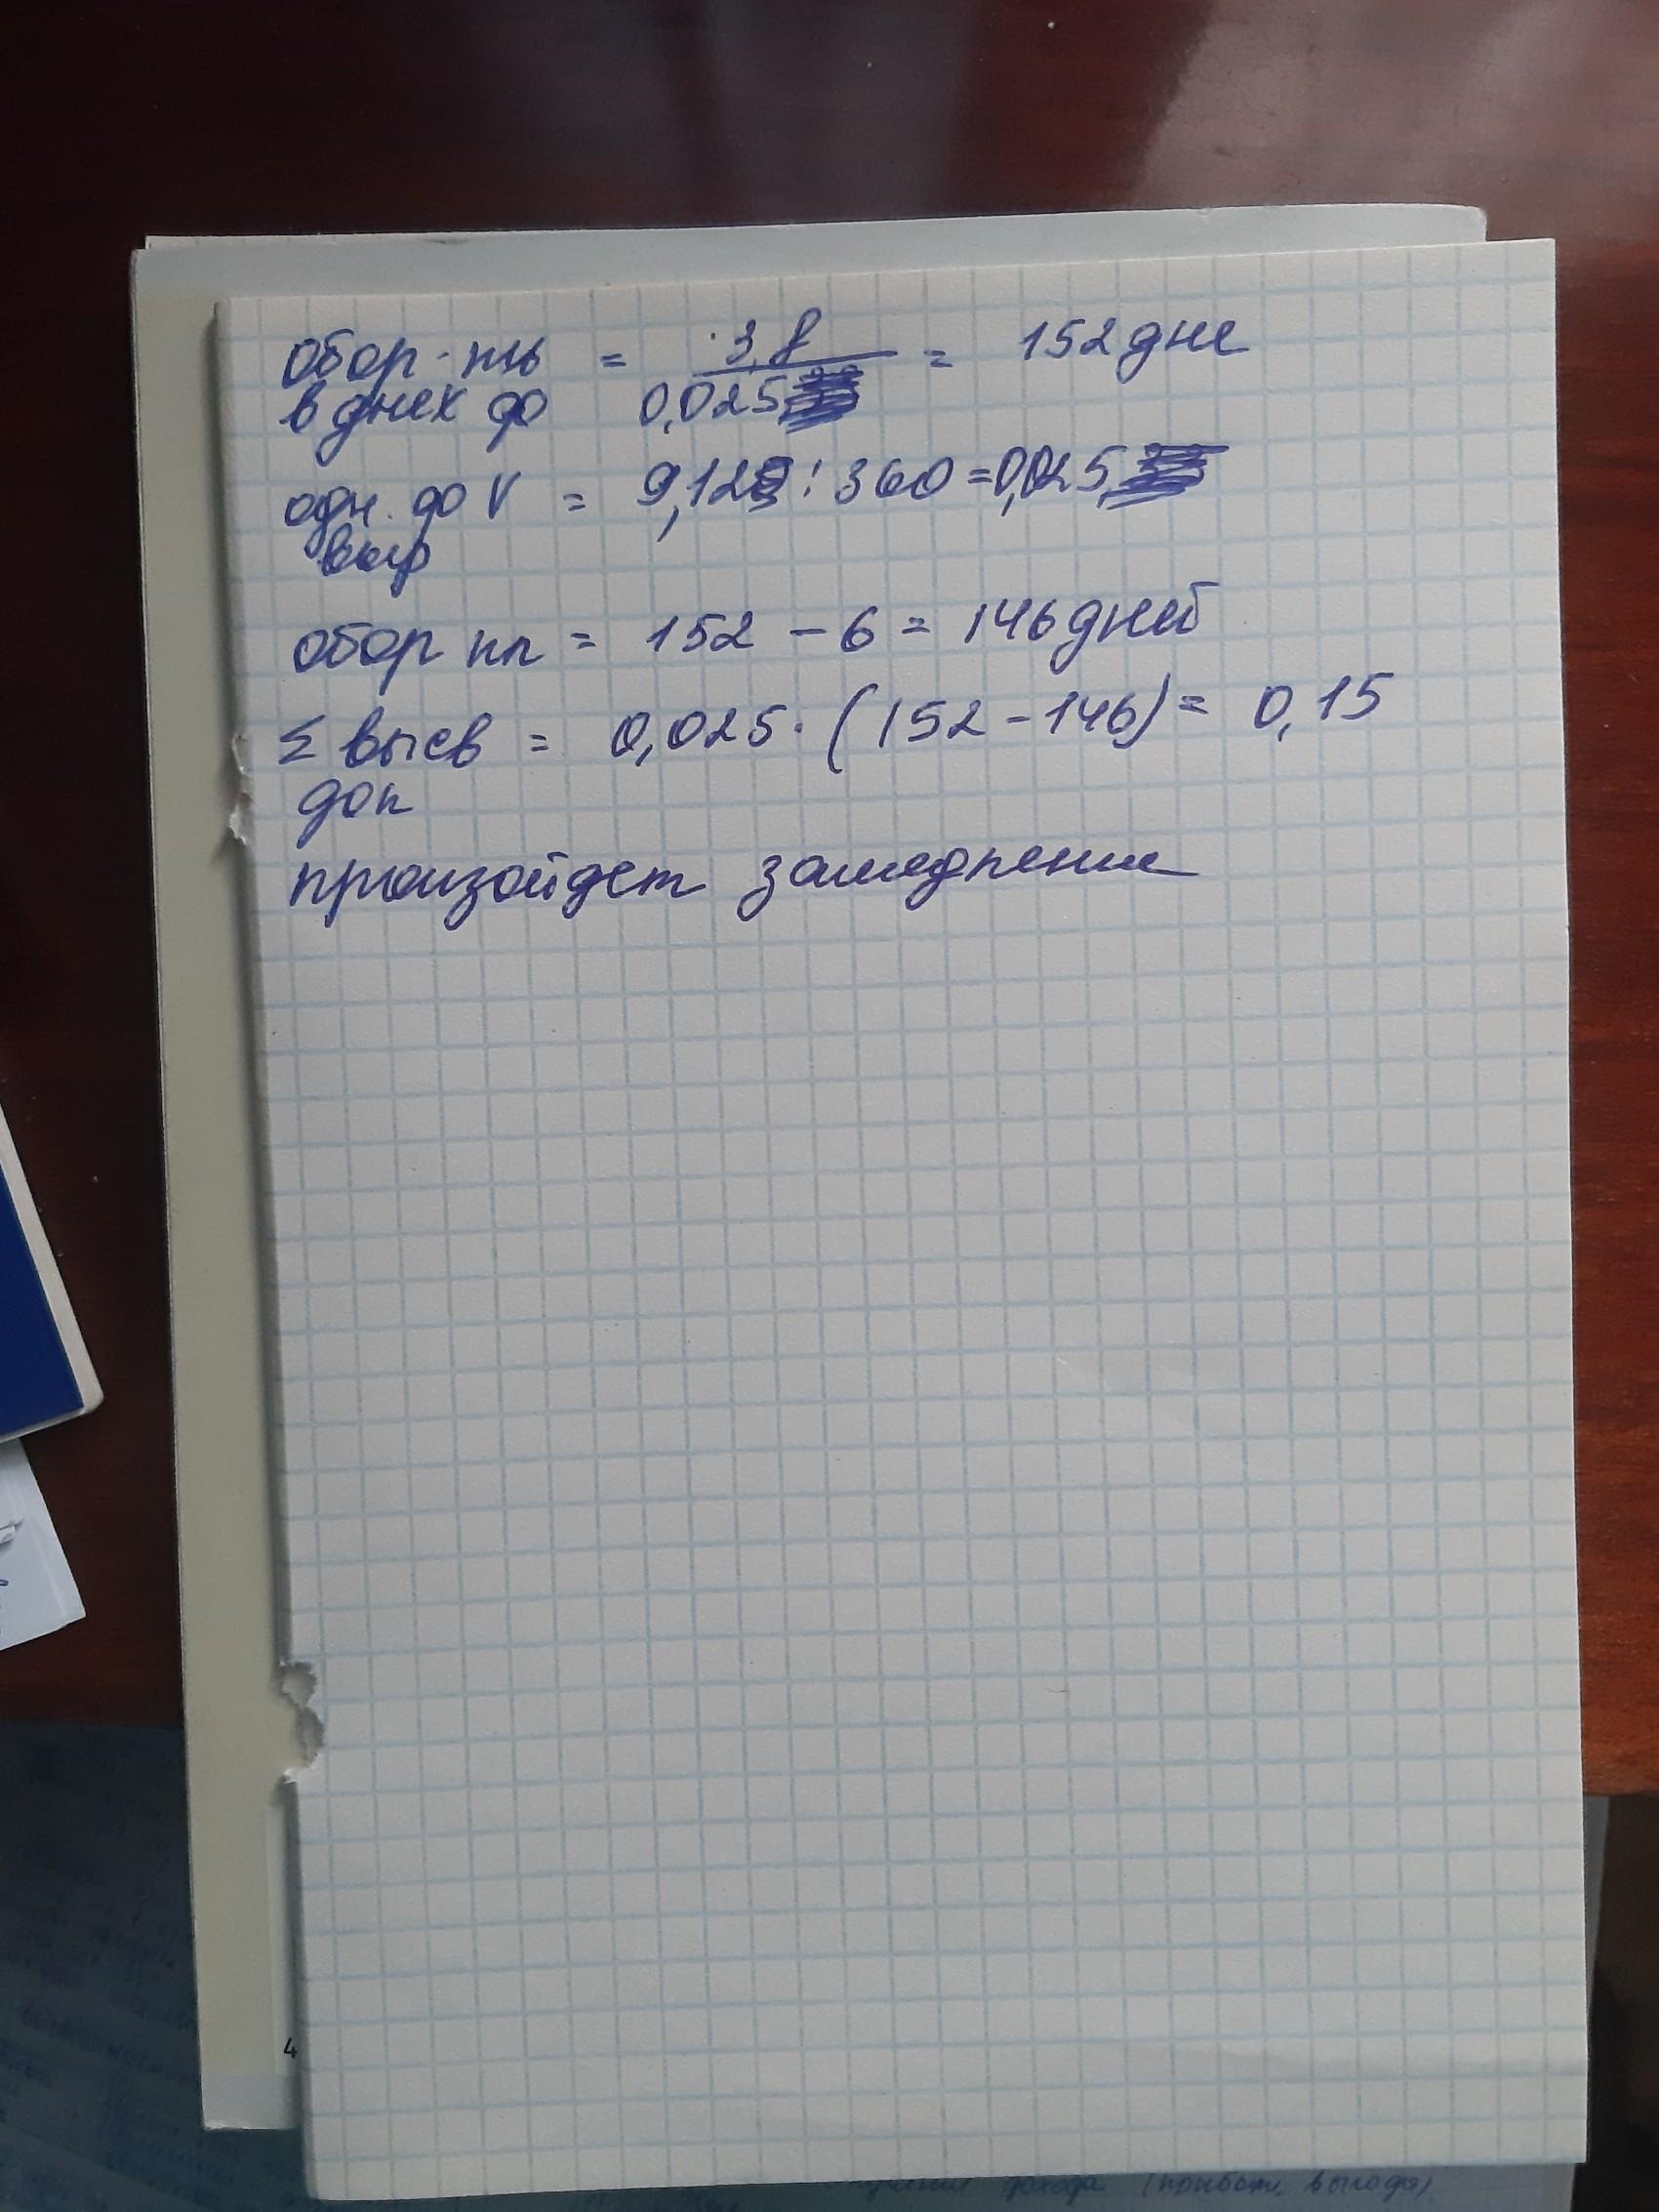 обор-ть = 3,8 = 152 дне
в днех до 0,025
одн. до V = 9,123 : 360 = 0,025
выр
обор пл = 152 - 6 = 146 дней
Σ высв = 0,025 · (152 - 146) = 0,15
доп
произойдет замедление
4
дохода (прибыли, выгода)